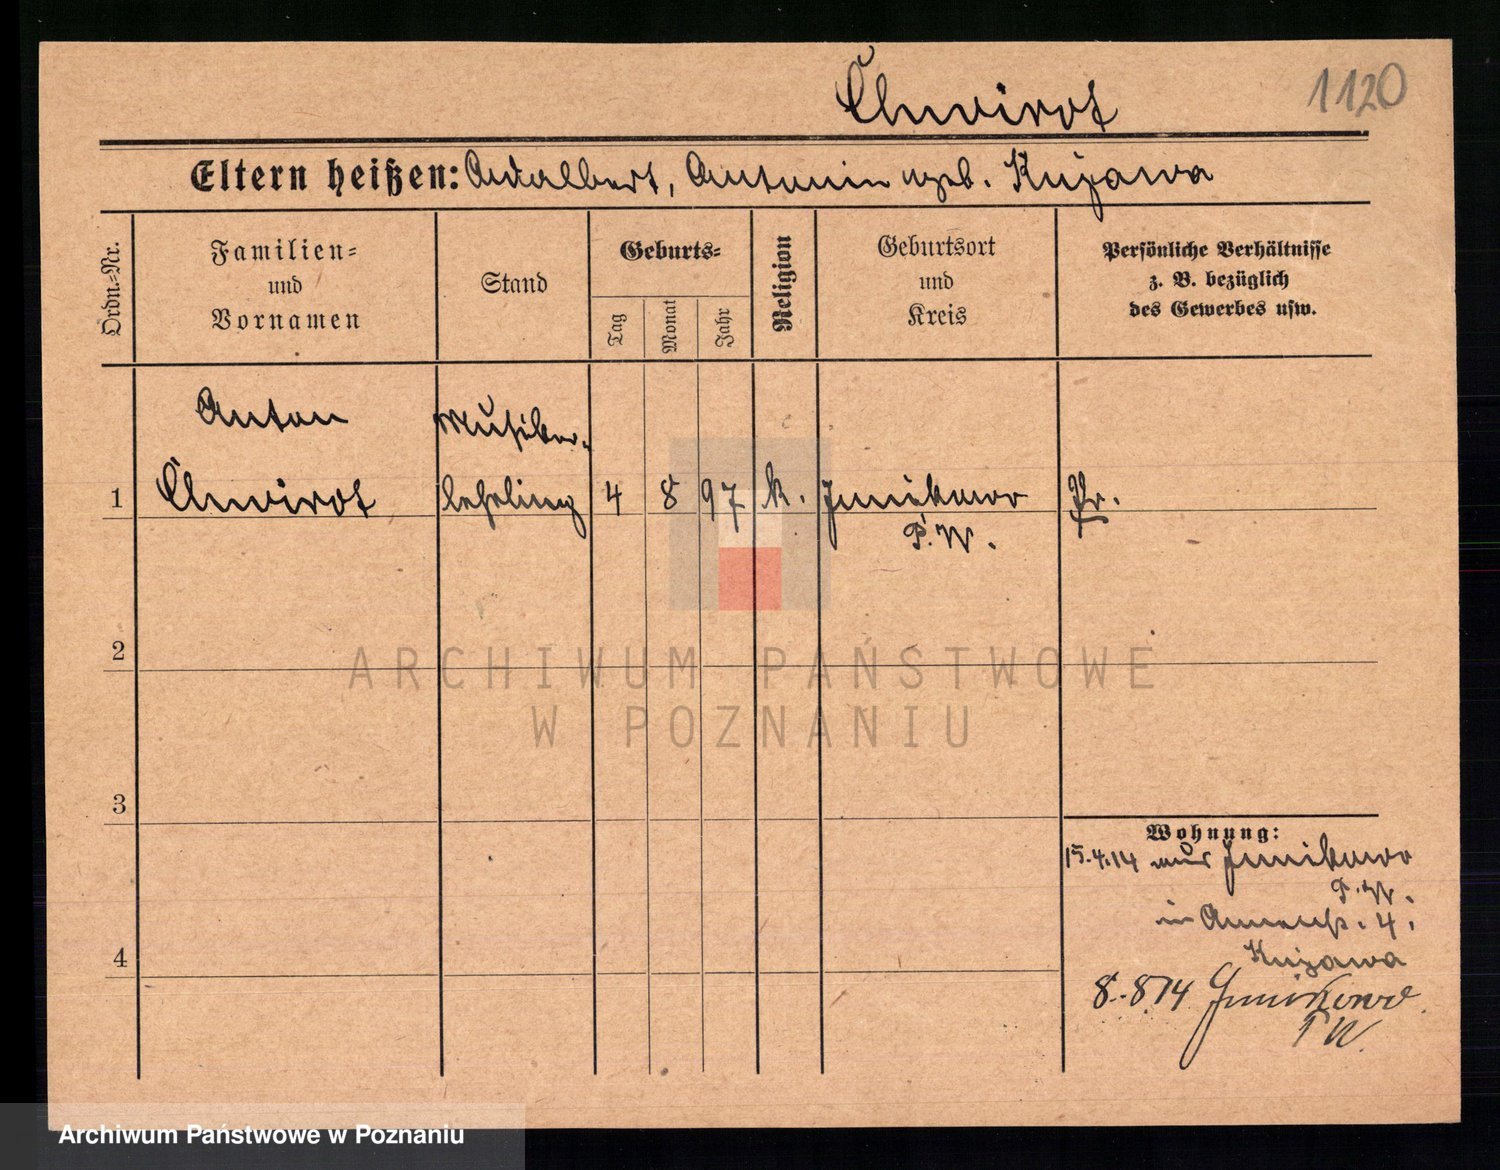 Chwirot
1120
Eltern heißen: Adalbert, Antonie geb. Kujawa
Ordn.-Nr.
Familien-
und
Vornamen
Stand
Geburts-
Tag
Monat
Jahr
Religion
Geburtsort
und
Kreis
Persönliche Verhältnisse
z. B. bezüglich
des Gewerbes usw.
Anton
Musiker-
1 Chwirot lehrling 4 8 97 k. Junikowo Pr.
P. W.
2
3
4
Wohnung:
15.4.14 aus Junikowo
P. W.
in Annenstr. 4.
Kujawa
8.-814 Junikowo
P W.
ARCHIWUM PAŃSTWOWE
W POZNANIU
Archiwum Państwowe w Poznaniu